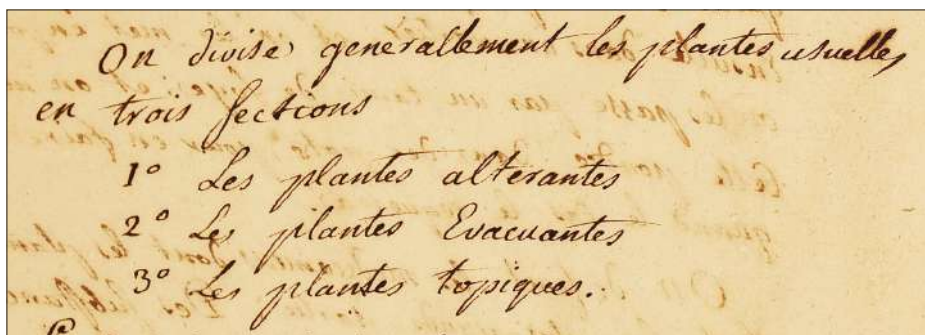 On divise generallement les plantes usuelles
en trois sections
1º Les plantes alterantes
2º Les plantes Evacuantes
3º Les plantes topiques.